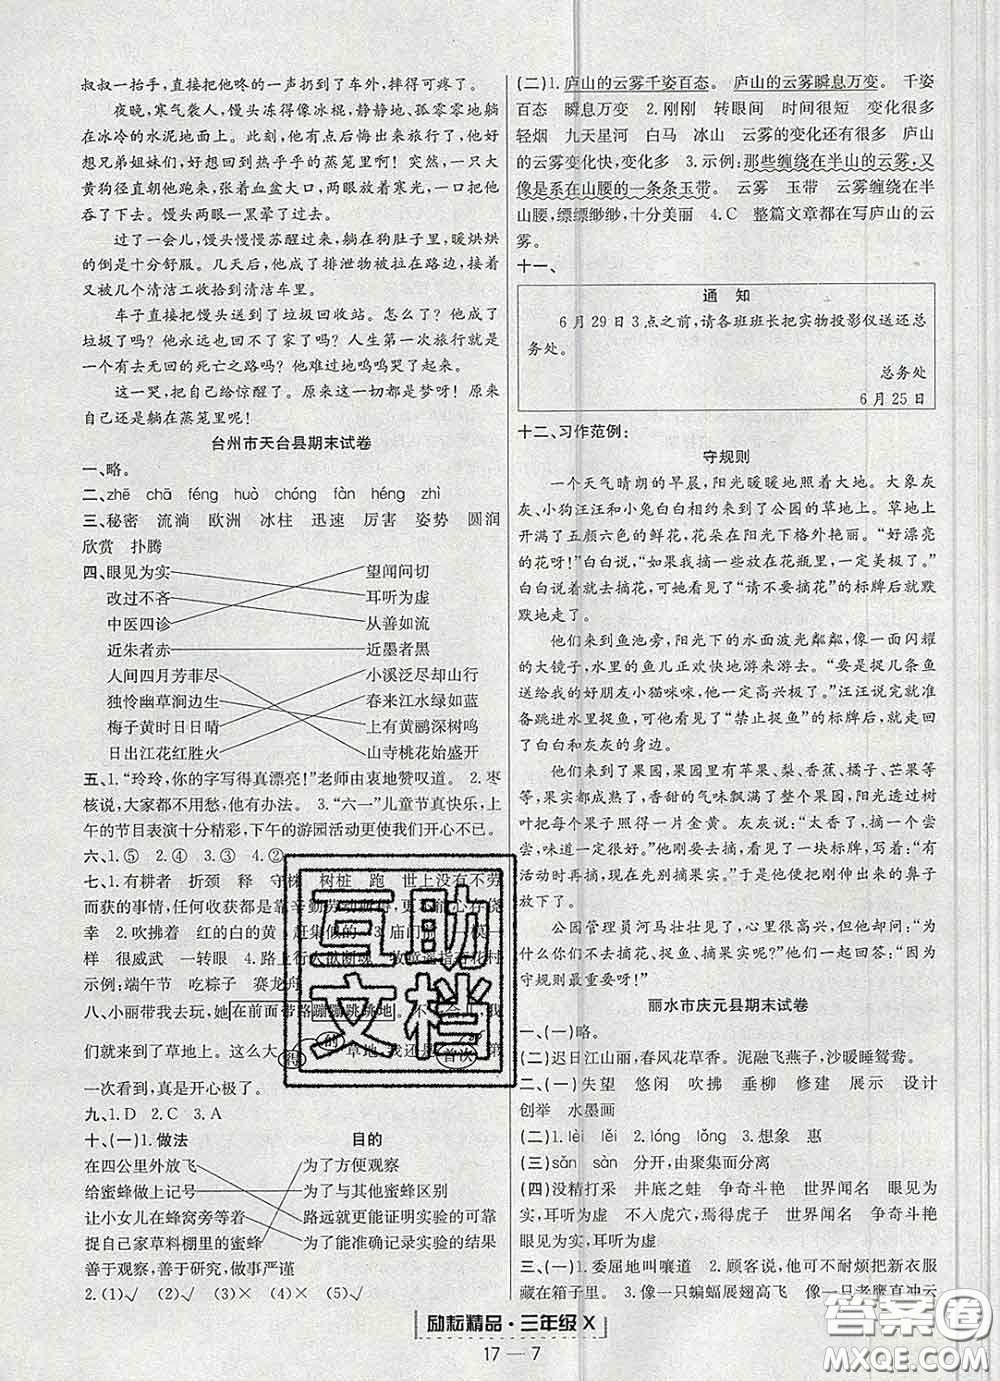 叔叔一抬手，直接把他咚的一声扔到了车外，摔得可疼了。
夜晚，寒气袭人，馒头冻得像冰棍，静静地、孤零零地躺
在冰冷的水泥地面上。此刻，他有点后悔出来旅行了，他好
想兄弟姐妹们，好想回到热乎乎的蒸笼里啊！突然，一只大
黄狗径直朝他跑来，张着血盆大口，两眼放着寒光，一口把他
吞了下去。馒头两眼一黑晕了过去。
过了一会儿，馒头慢慢苏醒过来，躺在狗肚子里，暖烘烘
的倒是十分舒服。几天后，他成了排泄物被拉在路边，又
被几个清洁工收拾到清洁车里。
车子直接把馒头送到了垃圾回收站。怎么了？他成了
垃圾了吗？他永远也回不来了吗？人生第一次旅行就成了
一次有去无回的死亡之路吗？他难过地呜呜哭了起来。
这一哭，把自己给惊醒了！原来这一切都是梦呀！原来
自己还是躺在蒸笼里呢！
台州市天台县期末试卷
一、略。
二、zhē chā féng huò chóng fàn héng zhì
三、秘密 流淌 欧洲 冰柱 迅速 厉害 姿势 圆润
欣赏 扑腾
四、眼见为实 望闻问切
改过不吝 耳听为虚
中医四诊 从善如流
近朱者赤 近墨者黑
人间四月芳菲尽 小溪泛尽却山行
独怜幽草涧边生 春来江水绿如蓝
梅子黄时日日晴 上有黄鹂深树鸣
日出江花红胜火 山寺桃花始盛开
五、1.“玲玲，你的字写得真漂亮！”老师由衷地赞叹道。 2.枣
核说，大家都不用愁，他有办法。 3.“六一”儿童节真快乐，上
午的节目表演十分精彩，下午的游园活动更使我们开心不已。
六、1.⑤ 2.④ 3.① 4.②
七、1.有耕者 折颈 释 守株 树桩 跑 世上没有不劳
而获的事情，任何收获都是靠辛勤劳动取得，更不能心存侥
幸 2.吹拂着 红的白的黄 赶集似的 3.庙门 模一
样 很威武 一转眼 4.路上行人欲断魂 牧童遥指杏花村
示例：端午节 吃粽子 赛龙舟
八、小丽带我去玩，她在前面带路蹦蹦跳跳地。不一会儿，我
们就来到了草地上。这么大 得 的 草地，我还是 首次 第
一次看到，真是开心极了。
九、1.D 2.C 3.A
十、(一)1.做法 目的
在四公里外放飞 为了方便观察
给蜜蜂做上记号 为了与其他蜜蜂区别
让小女儿在蜂窝旁等着 路远就更能证明实验的可靠
捉自己家草料棚里的蜜蜂 为了能准确记录实验的结果
善于观察，善于研究，做事严谨
2.(1)√ (2)√ (3)× (4)× (5)√
(二)1.庐山的云雾千姿百态。 庐山的云雾瞬息万变。 千姿
百态 瞬息万变 2.刚刚 转眼间 时间很短 变化很多
轻烟 九天星河 白马 冰山 云雾的变化还有很多 庐山
的云雾变化快，变化多 3.示例：那些缠绕在半山的云雾，又
像是系在山腰的一条条玉带。 云雾 玉带 云雾缠绕在半
山腰，缥缥缈缈，十分美丽 4.C 整篇文章都在写庐山的云
雾。
十一、
通 知
6月29日3点之前，请各班班长把实物投影仪送还总
务处。
总务处
6月25日
十二、习作范例：
守规则
一个天气晴朗的早晨，阳光暖暖地照着大地。大象灰
灰、小狗汪汪和小兔白白相约来到了公园的草地上。草地上
开满了五颜六色的鲜花，花朵在阳光下格外艳丽。“好漂亮
的花呀！”白白说，“如果我摘一些放在花瓶里，一定美极了。”
白白说完就去摘花，可她看见了“请勿摘花”的标牌后就默
默地走了。
他们来到鱼池旁，阳光下的水面波光粼粼，像一面闪耀
的大镜子，水里的鱼儿正欢快地游来游去。“要是捉几条鱼
送给我的好朋友小猫咪咪，他一定高兴极了。”汪汪说完就准
备跳进水里捉鱼，可他看见了“禁止捉鱼”的标牌后，就回到
了白白和灰灰的身边。
他们又来到了果园，果园里有苹果、梨、香蕉、橘子、芒果等
等，果实都成熟了，香甜的气味飘满了整个果园，阳光透过树
叶把每个果子照得一片金黄。灰灰说：“太香了，摘一个尝
尝，味道一定很好。”他刚想去摘，发现了一块标牌，写着：“有
活动时再进入果园，现在先别摘果实。”于是他把刚伸出来的鼻子
放下了。
公园管理员河马壮壮见了，心里很高兴，但又却问：“为
什么你们不去摘花、捉鱼、摘果实呢？”他们一起回答：“因为
守规则最重要呀！”
丽水市庆元县期末试卷
一、(一)略。
(二)迟日江山丽，春风花草香。泥融飞燕子，沙暖睡鸳鸯。
二、(一)失望 悠闲 吹拂 垂柳 修建 展示 设计
创举 水墨画
(二)1.lèi lěi 2.lóng lǒng 3.想象 惠
(三)sǎn sàn 分开，由聚集而分离
(四)没精打采 井底之蛙 争奇斗艳 世界闻名 眼见为
实，耳听为虚 不入虎穴，焉得虎子 世界闻名 争奇斗艳
眼见为实，耳听为虚
三、(一)1.委屈地叫嚷道 2.顾客说，他可不耐烦把新衣服
藏在箱子里。 3.一只像蝙蝠展翅高飞 一只是老鹰直冲云
励耘精品·三年级X
17—7
互助
文档
答案圈
MXQE.COM